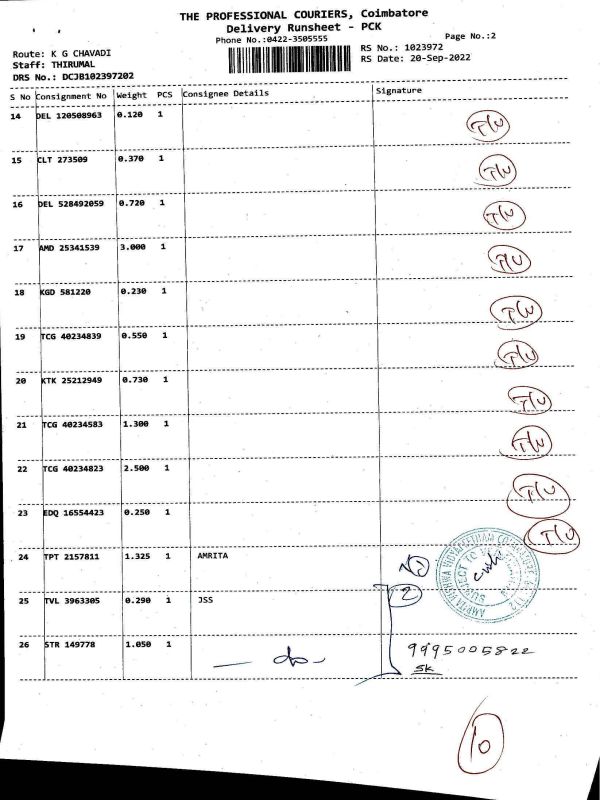 THE PROFESSIONAL COURIERS, Coimbatore
Delivery Runsheet - PCK
Phone No.:0422-3505555
Page No.:2
Route: K G CHAVADI
Staff: THIRUMAL
DRS No.: DCJB102397202
RS No.: 1023972
RS Date: 20-Sep-2022
S No Consignment No Weight PCS Consignee Details Signature
14 DEL 120508963 0.120 1 T/U
15 CLT 273509 0.370 1 T/U
16 DEL 528492059 0.720 1 T/U
17 AMD 25341539 3.000 1 T/U
18 KGD 581220 0.230 1 T/U
19 TCG 40234839 0.550 1 T/U
20 KTK 25212949 0.730 1 T/U
21 TCG 40234583 1.300 1 T/U
22 TCG 40234823 2.500 1 T/U
23 EDQ 16554423 0.250 1 T/U
24 TPT 2157811 1.325 1 AMRITA
25 TVL 3963305 0.290 1 JSS 2
26 STR 149778 1.050 1 — do — 9995005822
SK
10